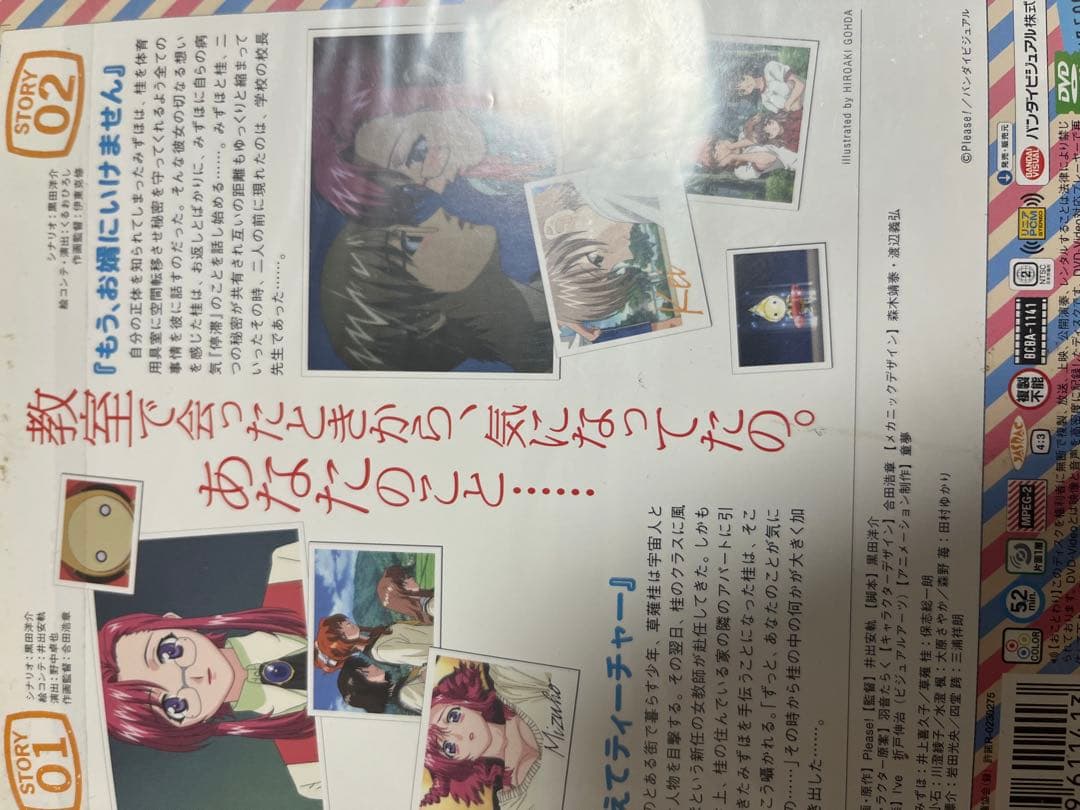 STORY 01
シナリオ:黒田洋介
絵コンテ:井出安軌
演出:野中卓也
作画監督:合田浩章
えてティーチャー』
のとある街で暮らす少年、草薙桂は宇宙人と
人物を目撃する。その翌日、桂のクラスに風
という新任の女教師が赴任してきた。しかも
上、桂の住んでいる家の隣のアパートに引
きたみずほを手伝うことになった桂は、そこ
こう囁かれる。「ずっと、あなたのことが気に
……」その時から桂の中の何かが大きく加
き出した……。
Mizuho
教室で会ったときから、気になってたの。
あなたのこと……
STORY 02
シナリオ:黒田洋介
絵コンテ・演出:くるおひろし
作画監督:伊東克修
『もう、お婿にいけません』
自分の正体を知られてしまったみずほは、桂を体育
用具室に空間転移させ秘密を守ってくれるよう全ての
事情を彼に話すのだった。そんな彼女の切なる想い
を感じた桂は、お返しとばかりに、みずほに自らの病
気「停滞」のことを話し始める……。みずほと桂、二
つの秘密が共有され互いの距離もゆっくりと縮まって
いったその時、二人の前に現れたのは、学校の校長
先生であった……。
Kei
Illustrated by HIROAKI GOHDA
・原作】Please!【監督】井出安軌【脚本】黒田洋介
ラクター原案】羽音たらく【キャラクターデザイン】合田浩章【メカニックデザイン】森木靖泰・渡辺義弘
I've 折戸伸治(ビジュアルアーツ)【アニメーション制作】童夢
みずほ:井上喜久子/草薙 桂:保志総一朗
石:川澄綾子/水澄 楓:大原さやか/森野 苺:田村ゆかり
介:岩田光央/四堂 跨:三浦祥朗
©Please!/バンダイビジュアル
COLOR
52 min.
片面1層
MPEG-2
4:3
複製不能
BCBA-1141
2 NTSC
リニアPCM STEREO
発売・販売元
BANDAI VISUAL
バンダイビジュアル株式
DVD